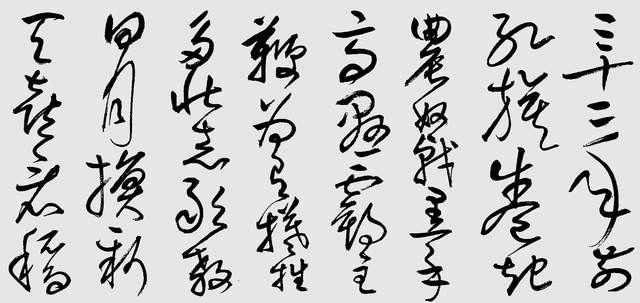 三十二年前
紅旗卷起
農奴戟黑手
高懸霸主
鞭為有犧牲
多壯志敢教
日月換新
天喜看稻